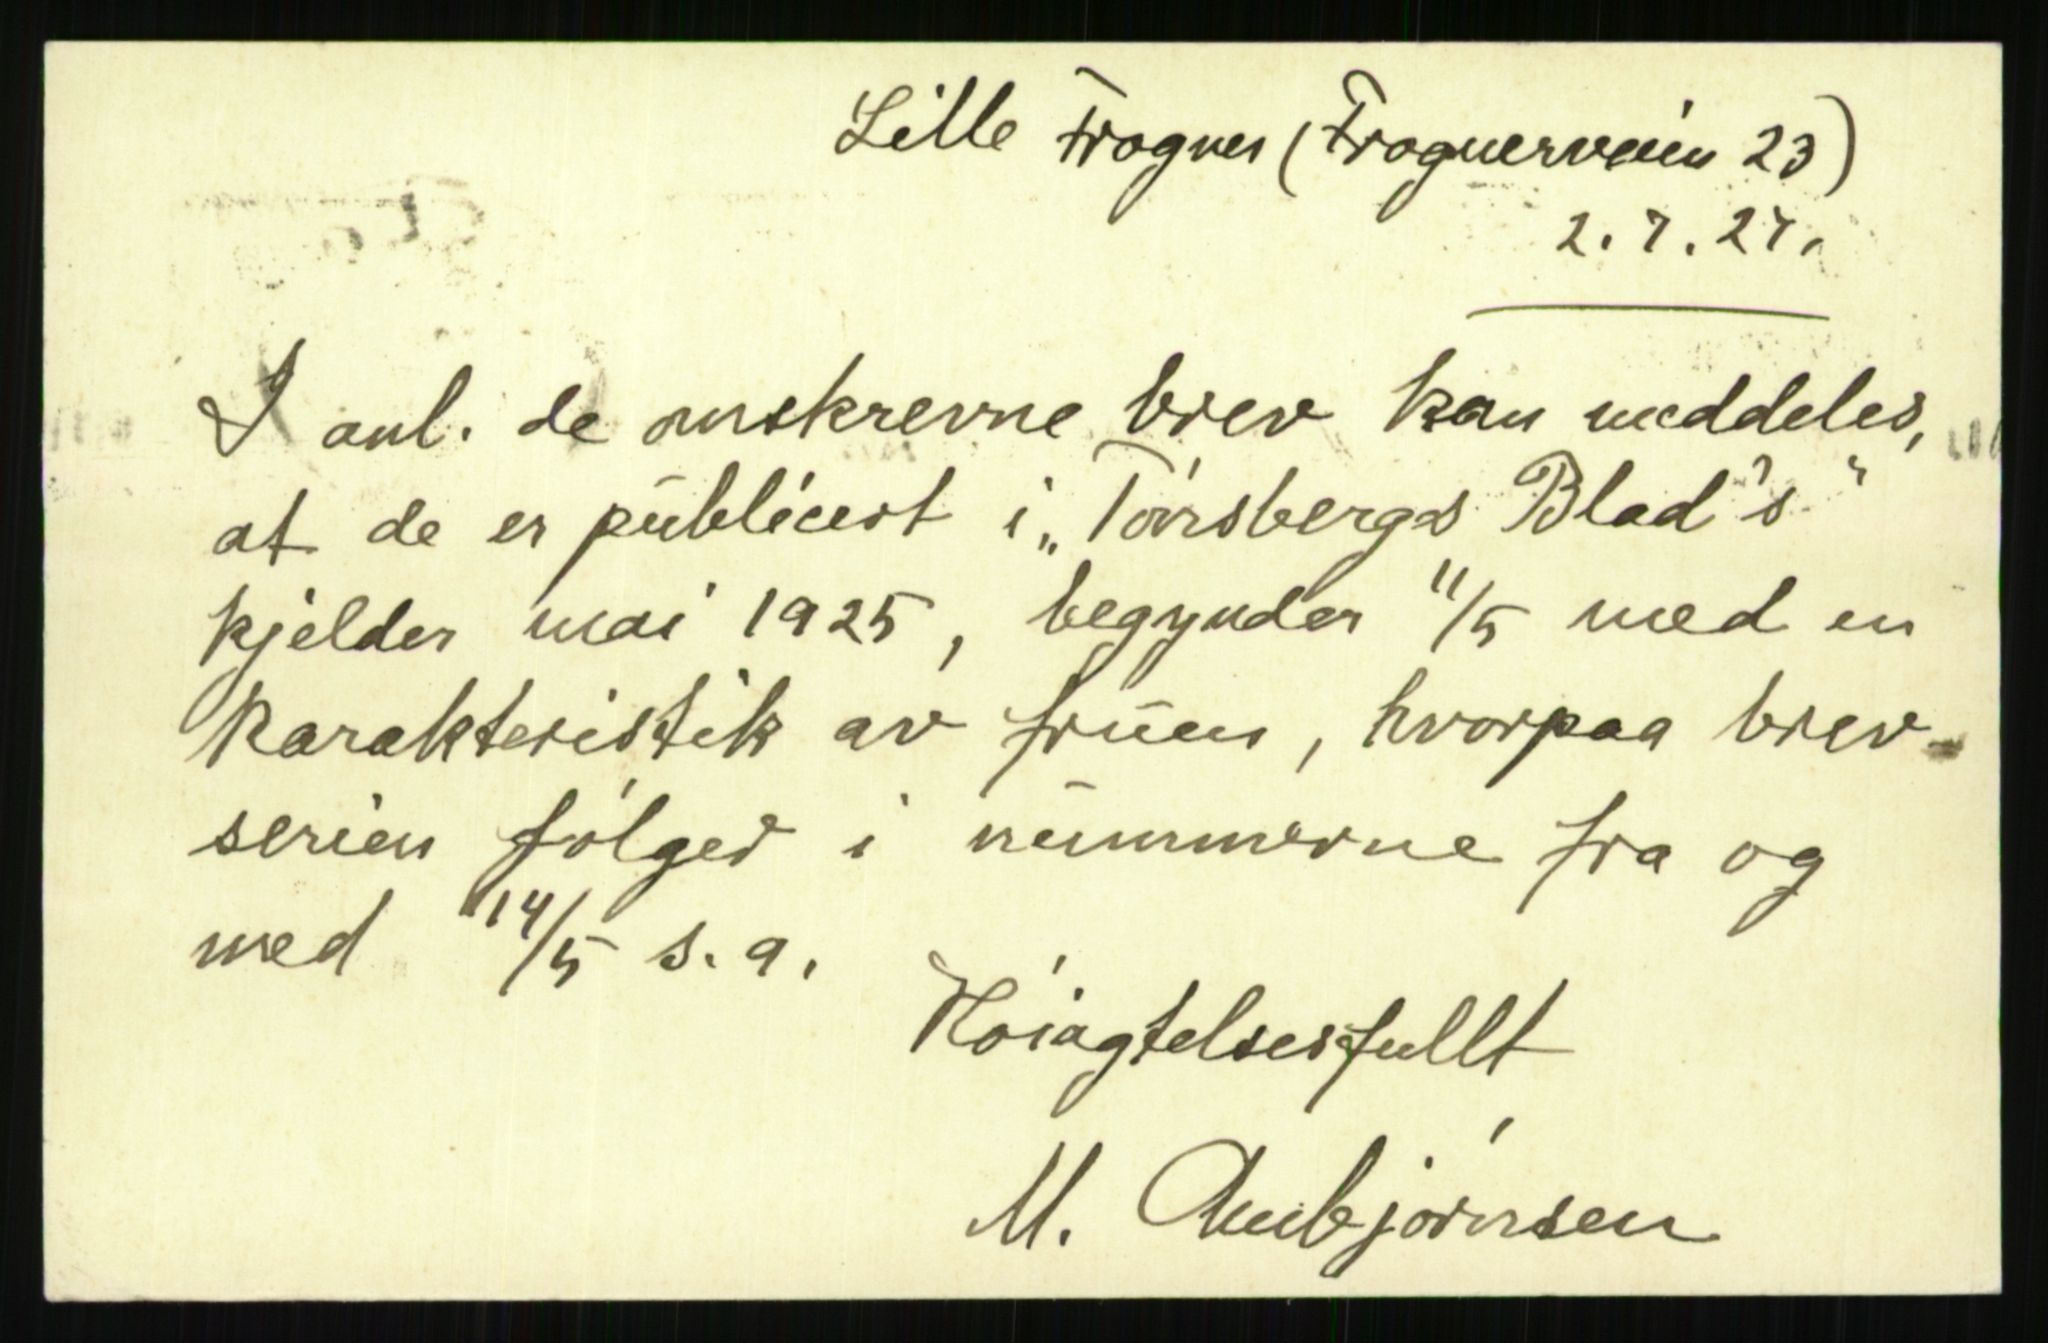 Lille Frogner (Frognerveien 23)
2.7.27.
I anl. de omskrevne brev kan meddeles,
at de er publicert i „Tønsbergs Blad's"
kjelder mai 1925, begynder 11/5 med en
karakteristik av fruen, hvorpaa brev-
serien følger i numrene fra og
med 14/5 s. a.
Høiagtelsesfullt
M. Ambjørnsen